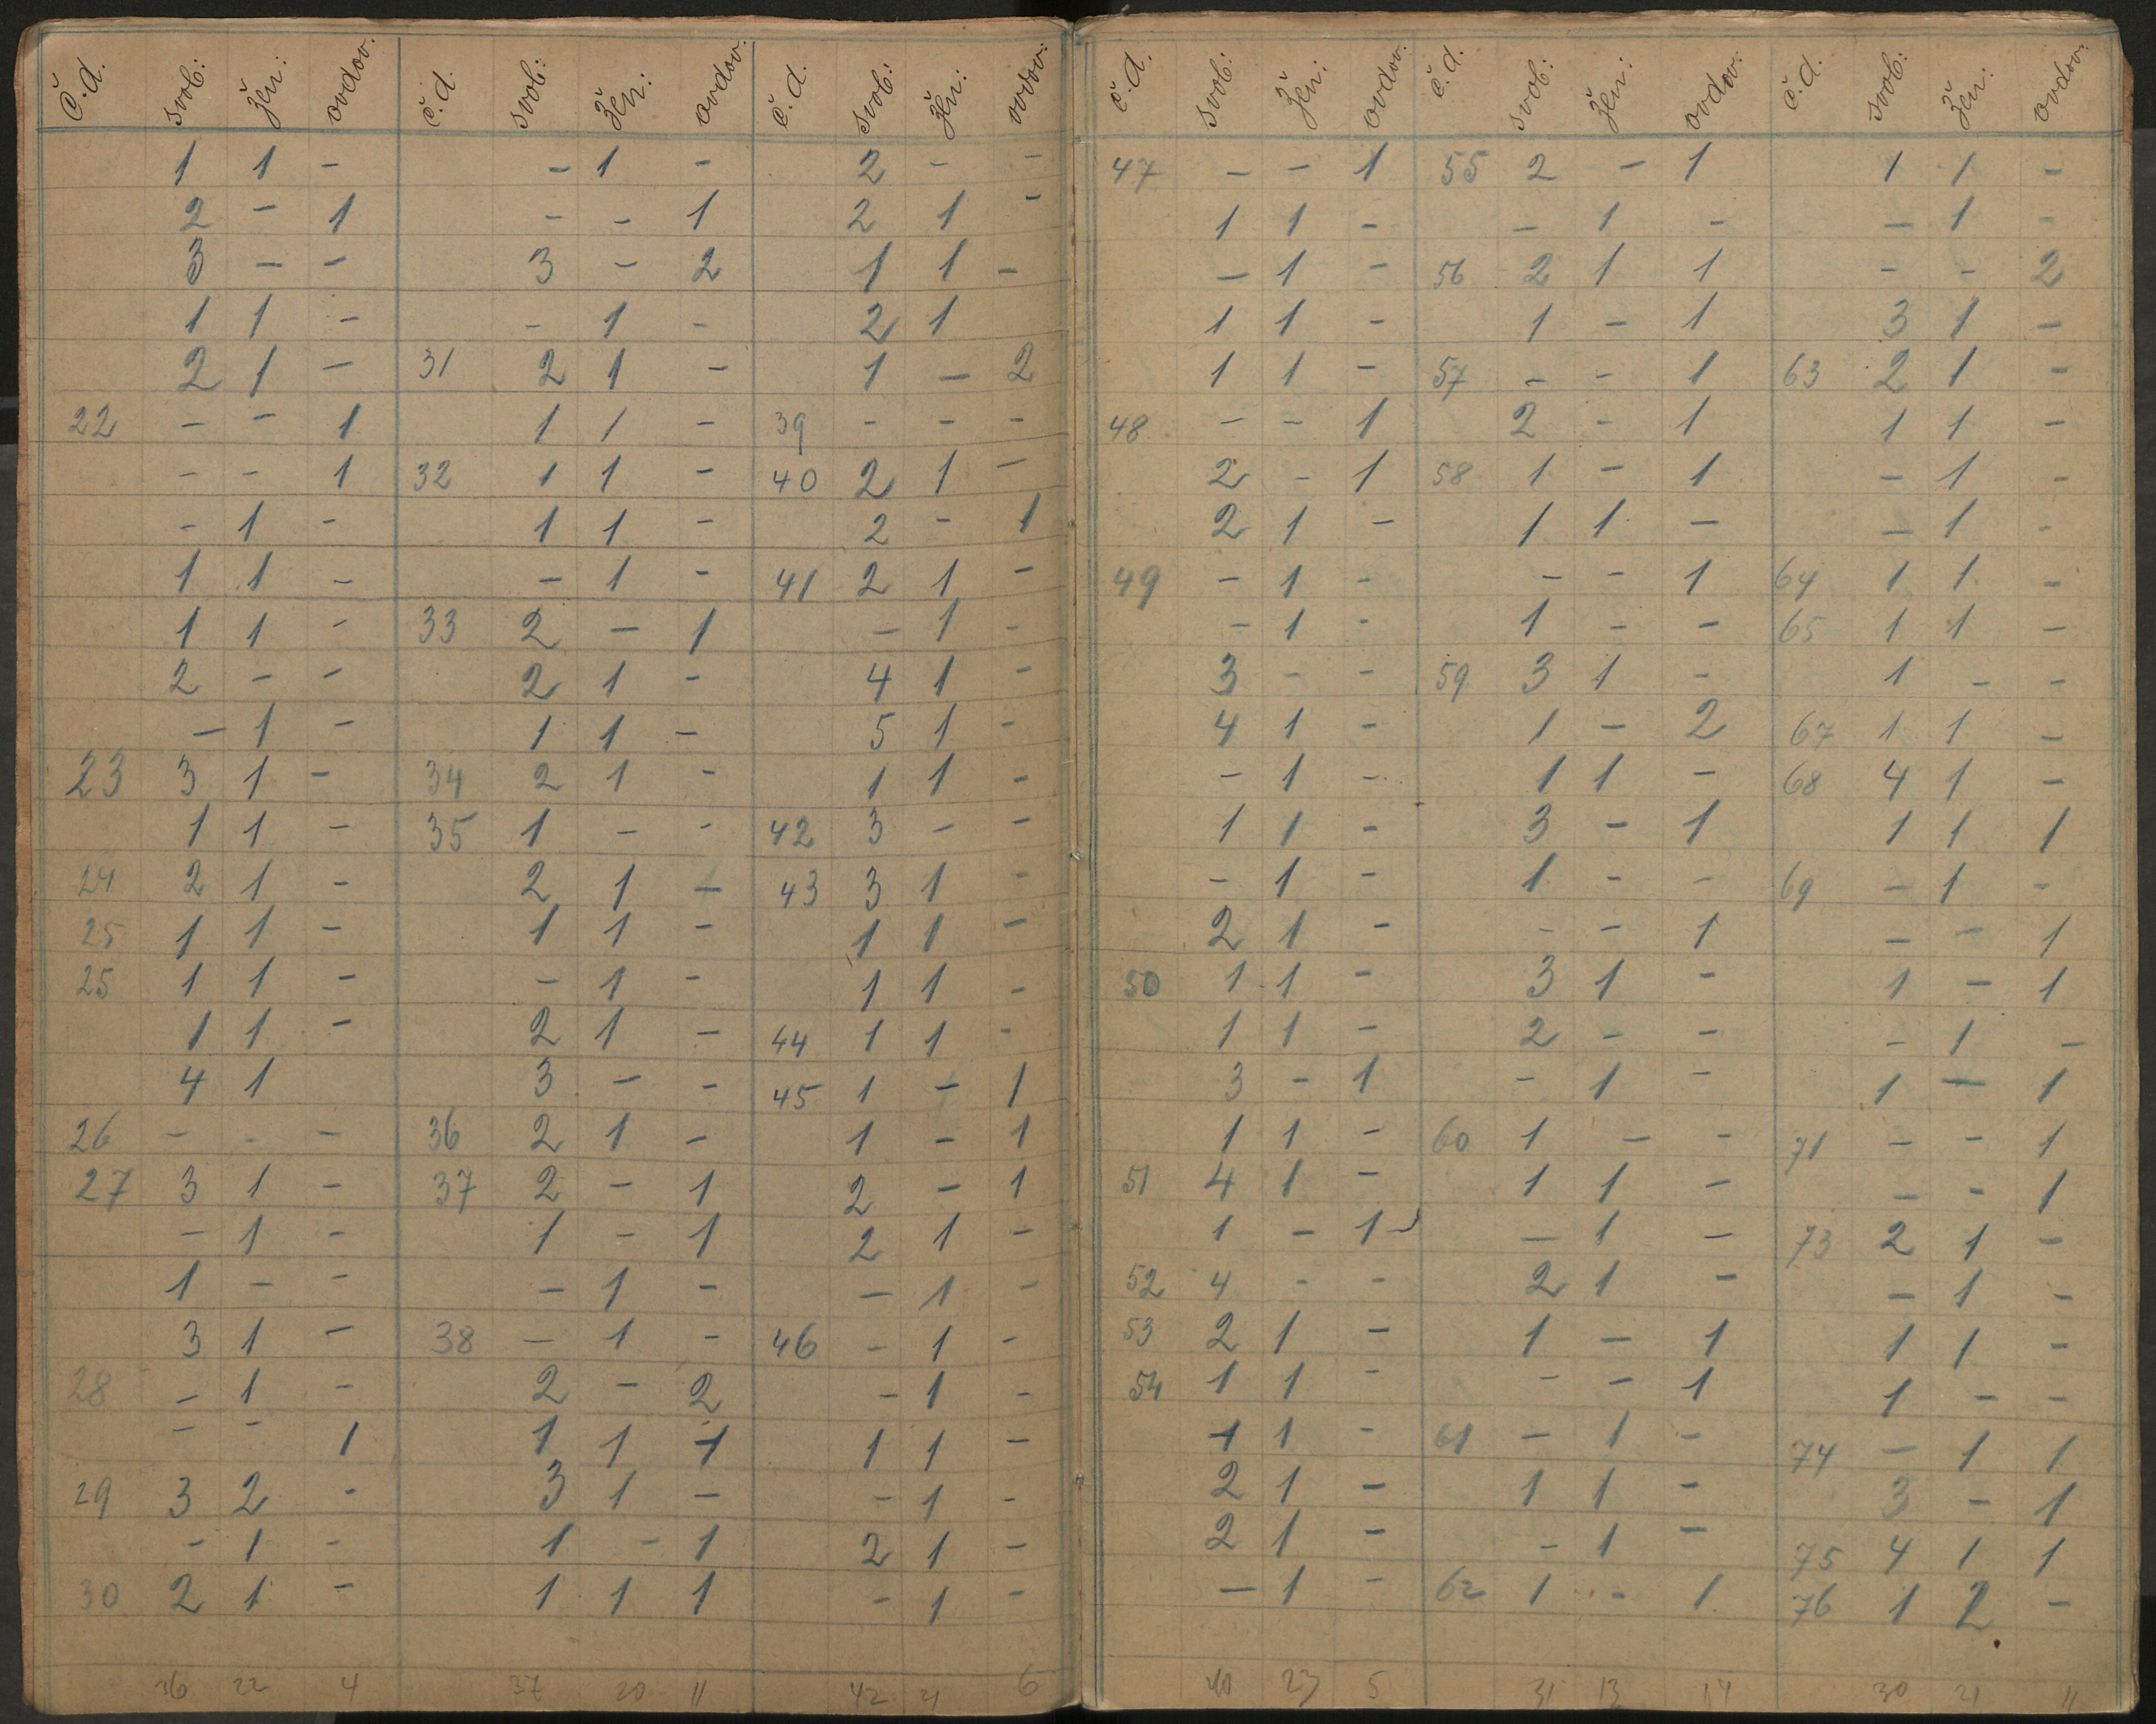 č.d. svob: žen: ovdov: č.d. svob: žen: ovdov: č.d. svob: žen: ovdov:
1 1 - - 1 - 2 - -
2 - 1 - - 1 2 1 -
3 - - 3 - 2 1 1 -
1 1 - - 1 - 2 1
2 1 - 31 2 1 - 1 - 2
22 - - 1 1 1 - 39 - - -
- - 1 32 1 1 - 40 2 1 -
- 1 - 1 1 - 2 - 1
1 1 - - 1 - 41 2 1 -
1 1 - 33 2 - 1 - 1 -
2 - - 2 1 - 4 1 -
- 1 - 1 1 - 5 1 -
23 3 1 - 34 2 1 - 1 1 -
1 1 - 35 1 - - 42 3 - -
24 2 1 - 2 1 - 43 3 1 -
25 1 1 - 1 1 - 1 1 -
25 1 1 - - 1 - 1 1 -
1 1 - 2 1 - 44 1 1 -
4 1 3 - - 45 1 - 1
26 - - - 36 2 1 - 1 - 1
27 3 1 - 37 2 - 1 2 - 1
- 1 - 1 - 1 2 1 -
1 - - - 1 - - 1 -
3 1 - 38 - 1 - 46 - 1 -
28 - 1 - 2 - 2 - 1 -
- - 1 1 1 1 1 1 -
29 3 2 - 3 1 - - 1 -
- 1 - 1 - 1 2 1 -
30 2 1 - 1 1 1 - 1 -
36 22 4 37 20 11 42 21 6
č.d. svob: žen: ovdov: č.d. svob: žen: ovdov: č.d. svob: žen: ovdov:
47 - - 1 55 2 - 1 1 1 -
1 1 - - 1 - - 1 -
- 1 - 56 2 1 1 - - 2
1 1 - 1 - 1 3 1 -
1 1 - 57 - - 1 63 2 1 -
48 - - 1 2 - 1 1 1 -
2 - 1 58 1 - 1 - 1 -
2 1 - 1 1 - - 1 -
49 - 1 - - - 1 64 1 1 -
- 1 - 1 - - 65 1 1 -
3 - - 59 3 1 - 1 - -
4 1 - 1 - 2 67 1 1 -
- 1 - 1 1 - 68 4 1 -
1 1 - 3 - 1 1 1 1
- 1 - 1 - - 69 - 1 -
2 1 - - - 1 - - 1
50 1 1 - 3 1 - 1 - 1
1 1 - 2 - - - 1 -
3 - 1 - 1 - 1 - 1
1 1 - 60 1 - - 71 - - 1
51 4 1 - 1 1 - - - 1
1 - 1 - 1 - 73 2 1 -
52 4 - - 2 1 - - 1 -
53 2 1 - 1 - 1 1 1 -
54 1 1 - - - 1 1 - -
1 1 - 61 - 1 - 74 - 1 1
2 1 - 1 1 - 3 - 1
2 1 - - 1 - 75 4 1 1
- 1 - 62 1 - 1 76 1 2 -
40 23 5 31 13 14 30 21 11